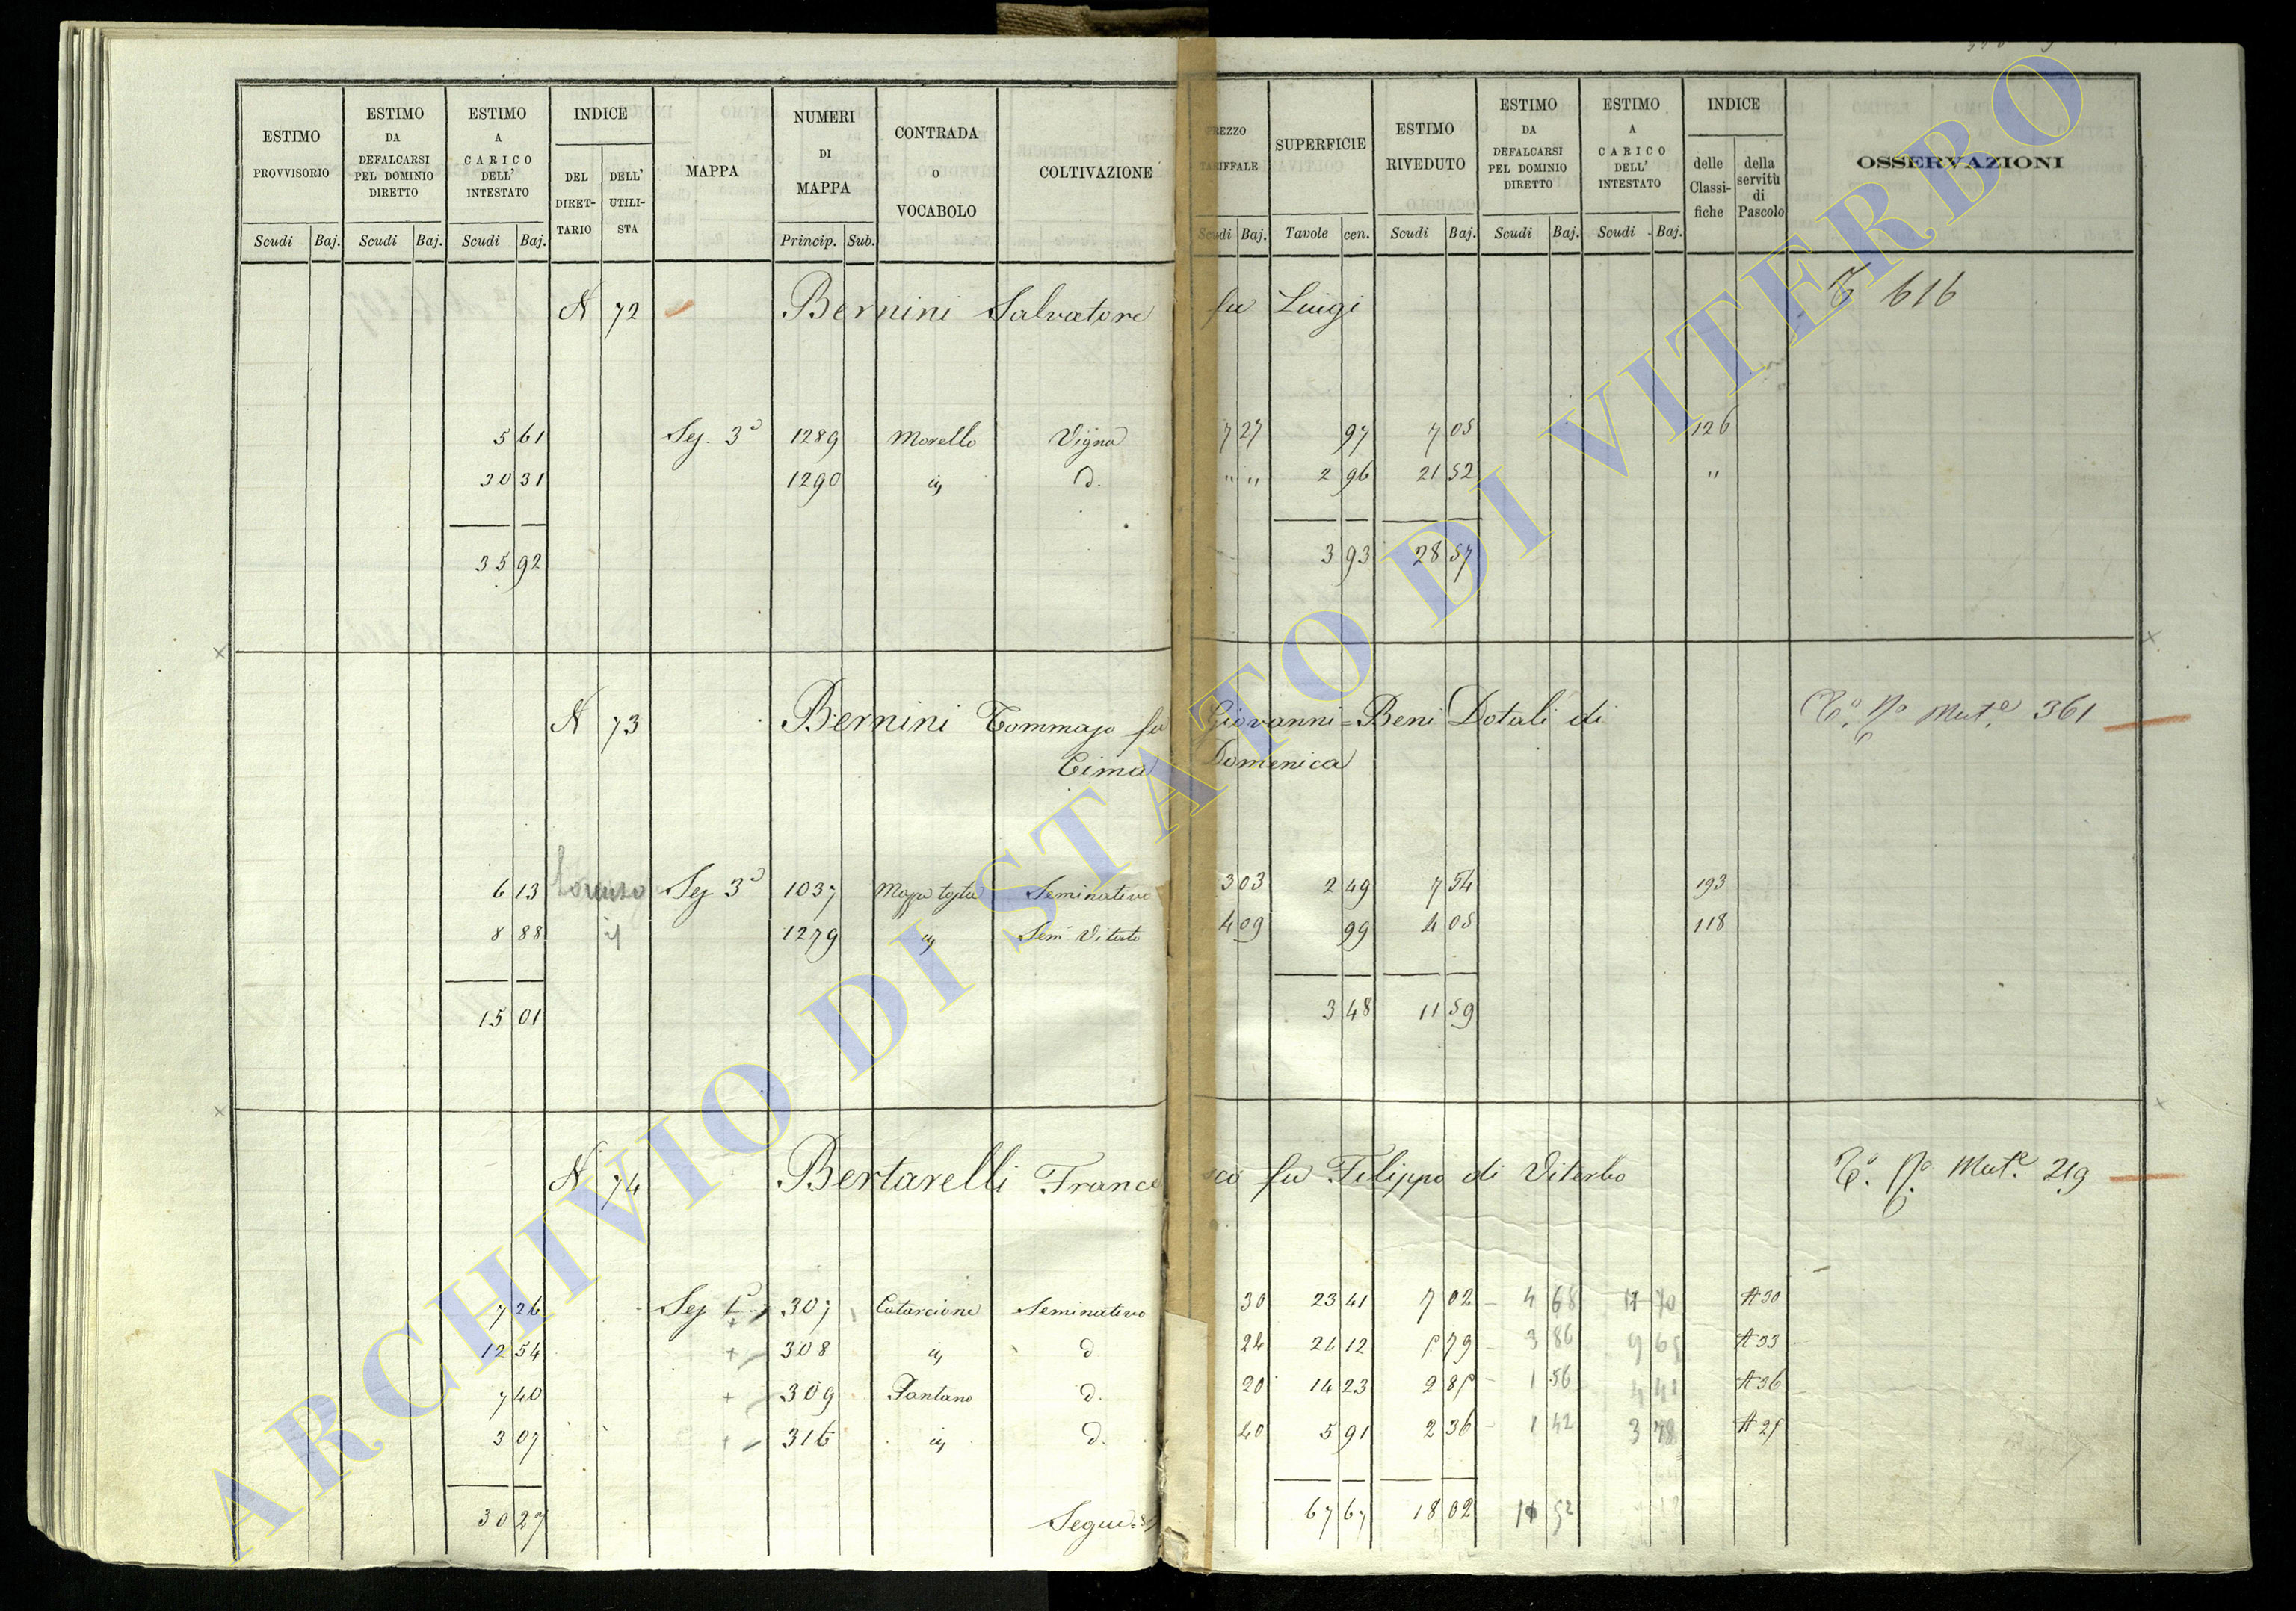 ESTIMO PROVVISORIO | ESTIMO DA DEFALCARSI PEL DOMINIO DIRETTO | ESTIMO A CARICO DELL' INTESTATO | INDICE DEL DIRET-TARIO | DELL' UTILI-STA | MAPPA | NUMERI DI MAPPA | CONTRADA o VOCABOLO | COLTIVAZIONE | PREZZO TARIFFALE | SUPERFICIE | ESTIMO RIVEDUTO | ESTIMO DA DEFALCARSI PEL DOMINIO DIRETTO | ESTIMO A CARICO DELL' INTESTATO | INDICE delle Classi-fiche | della servitù di Pascolo | OSSERVAZIONI
Scudi Baj. Scudi Baj. Scudi Baj. Princip. Sub. Scudi Baj. Tavole cen. Scudi Baj. Scudi Baj. Scudi Baj.
N 72 Bernini Salvatore fu Luigi 616
5 61 Sez. 3ª 1289 Morello Vigna 7 27 97 7 05 126
30 31 1290 id. d. " " 2 96 21 52 "
35 92 3 93 28 57
N 73 Bernini Tommaso fu Giovanni = Beni Dotali di Mut.e 361
Cima Domenica
6 13 Sez 3ª 1037 Seminativo 3 03 2 49 7 54 193
8 88 1279 id. Sem. Vitato 4 09 99 4 05 118
15 01 3 48 11 59
N 74 Bertarelli Francesco fu Filippo di Viterbo Mut.e 219
7 26 Sez 307 Catarcione Seminativo 30 23 41 7 02 4 68 A 30
12 54 308 id. d 24 24 12 5 79 3 86 9 65 A 33
7 40 309 Pantano d. 20 14 23 2 85 1 56 4 41 A 36
3 07 316 id. d. 40 5 91 2 36 1 42 3 78 A 25
30 27 Segue 67 67 18 02
ARCHIVIO DI STATO DI VITERBO